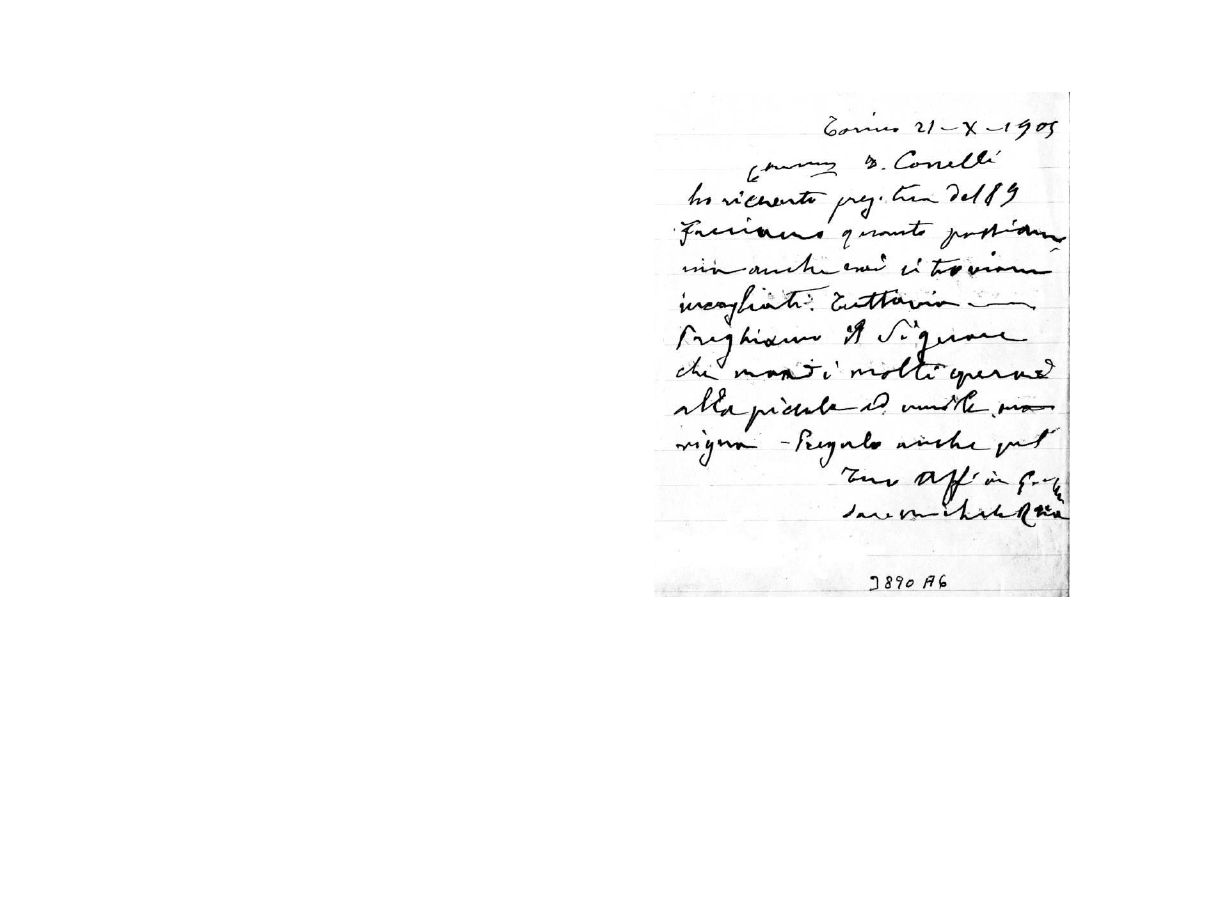 Torino 21-X-1905
D. Conelli
ho ricevuto preg. tua del 19
Facciamo quanto possiamo
ma anche noi ci troviamo
incagliati. Tuttavia
Preghiamo il Signore
che mandi molti operai
alla piccola ed umile
vigna - Pregalo anche pel
Tuo Aff. in G.
Sac Michele Rua
3890 A6